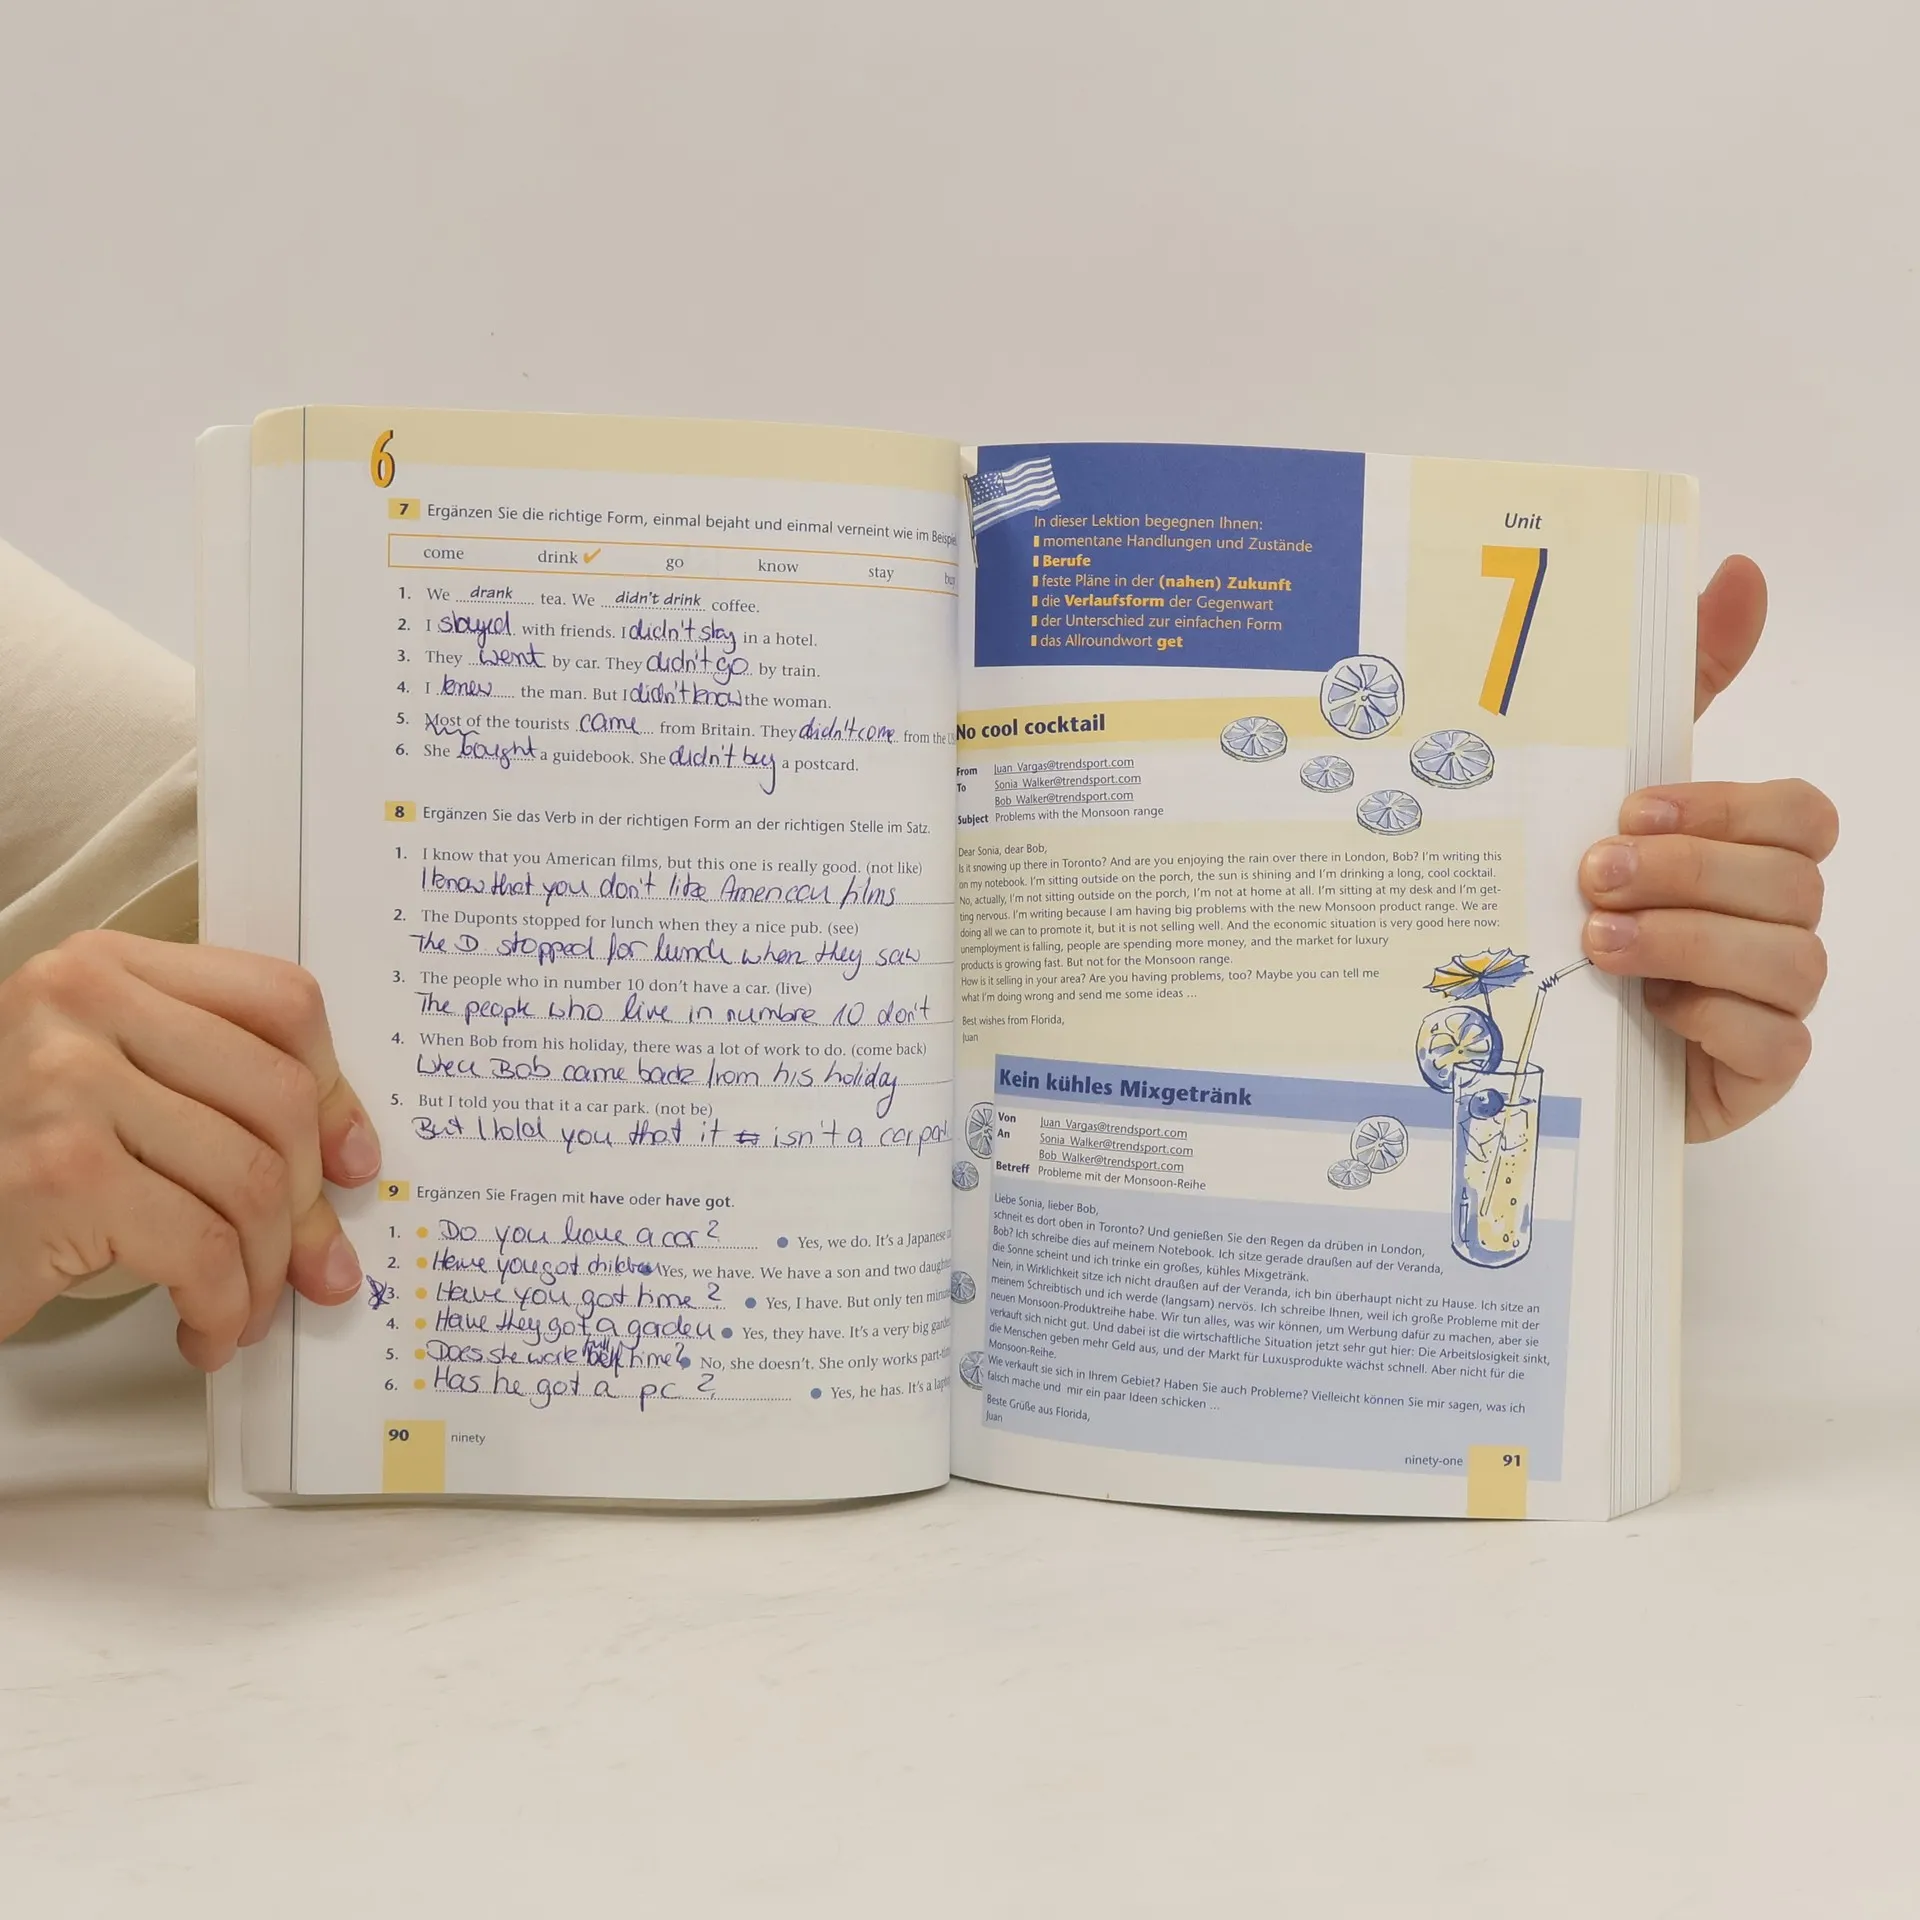 6
7 Ergänzen Sie die richtige Form, einmal bejaht und einmal verneint wie im
come drink ✓ go know stay
1. We drank tea. We didn't drink coffee.
2. I stayed with friends. I didn't stay in a hotel.
3. They went by car. They didn't go by train.
4. I knew the man. But I didn't know the woman.
5. Most of the tourists came from Britain. They didn't come from the
6. She bought a guidebook. She didn't buy a postcard.
8 Ergänzen Sie das Verb in der richtigen Form an der richtigen Stelle im Satz.
1. I know that you American films, but this one is really good. (not like)
I know that you don't like American films
2. The Duponts stopped for lunch when they a nice pub. (see)
The D. stopped for lunch when they saw
3. The people who in number 10 don't have a car. (live)
The people who live in numbre 10 don't
4. When Bob from his holiday, there was a lot of work to do. (come back)
When Bob came back from his holiday
5. But I told you that it a car park. (not be)
But I told you that it isn't a car
9 Ergänzen Sie Fragen mit have oder have got.
1. Do you have a car? Yes, we do. It's a Japanese
2. Have you got children Yes, we have. We have a son and two
3. Have you got time? Yes, I have. But only ten
4. Have they got a garden Yes, they have. It's a very big
5. Does she work full time? No, she doesn't. She only works
6. Has he got a pc? Yes, he has. It's a
90 ninety
In dieser Lektion begegnen Ihnen:
momentane Handlungen und Zustände
Berufe
feste Pläne in der (nahen) Zukunft
die Verlaufsform der Gegenwart
der Unterschied zur einfachen Form
das Allroundwort get
Unit
7
No cool cocktail
From Juan_Vargas@trendsport.com
To Sonia_Walker@trendsport.com
Bob_Walker@trendsport.com
Subject Problems with the Monsoon range
Dear Sonia, dear Bob,
Is it snowing up there in Toronto? And are you enjoying the rain over there in London, Bob? I'm writing this
on my notebook. I'm sitting outside on the porch, the sun is shining and I'm drinking a long, cool cocktail.
No, actually, I'm not sitting outside on the porch, I'm not at home at all. I'm sitting at my desk and I'm get-
ting nervous. I'm writing because I am having big problems with the new Monsoon product range. We are
doing all we can to promote it, but it is not selling well. And the economic situation is very good here now:
unemployment is falling, people are spending more money, and the market for luxury
products is growing fast. But not for the Monsoon range.
How is it selling in your area? Are you having problems, too? Maybe you can tell me
what I'm doing wrong and send me some ideas ...
Best wishes from Florida,
Juan
Kein kühles Mixgetränk
Von Juan_Vargas@trendsport.com
An Sonia_Walker@trendsport.com
Bob_Walker@trendsport.com
Betreff Probleme mit der Monsoon-Reihe
Liebe Sonia, lieber Bob,
schneit es dort oben in Toronto? Und genießen Sie den Regen da drüben in London,
Bob? Ich schreibe dies auf meinem Notebook. Ich sitze gerade draußen auf der Veranda,
die Sonne scheint und ich trinke ein großes, kühles Mixgetränk.
Nein, in Wirklichkeit sitze ich nicht draußen auf der Veranda, ich bin überhaupt nicht zu Hause. Ich sitze an
meinem Schreibtisch und ich werde (langsam) nervös. Ich schreibe Ihnen, weil ich große Probleme mit der
neuen Monsoon-Produktreihe habe. Wir tun alles, was wir können, um Werbung dafür zu machen, aber sie
verkauft sich nicht gut. Und dabei ist die wirtschaftliche Situation jetzt sehr gut hier: Die Arbeitslosigkeit sinkt,
die Menschen geben mehr Geld aus, und der Markt für Luxusprodukte wächst schnell. Aber nicht für die
Monsoon-Reihe.
Wie verkauft sie sich in Ihrem Gebiet? Haben Sie auch Probleme? Vielleicht können Sie mir sagen, was ich
falsch mache und mir ein paar Ideen schicken ...
Beste Grüße aus Florida,
Juan
ninety-one 91